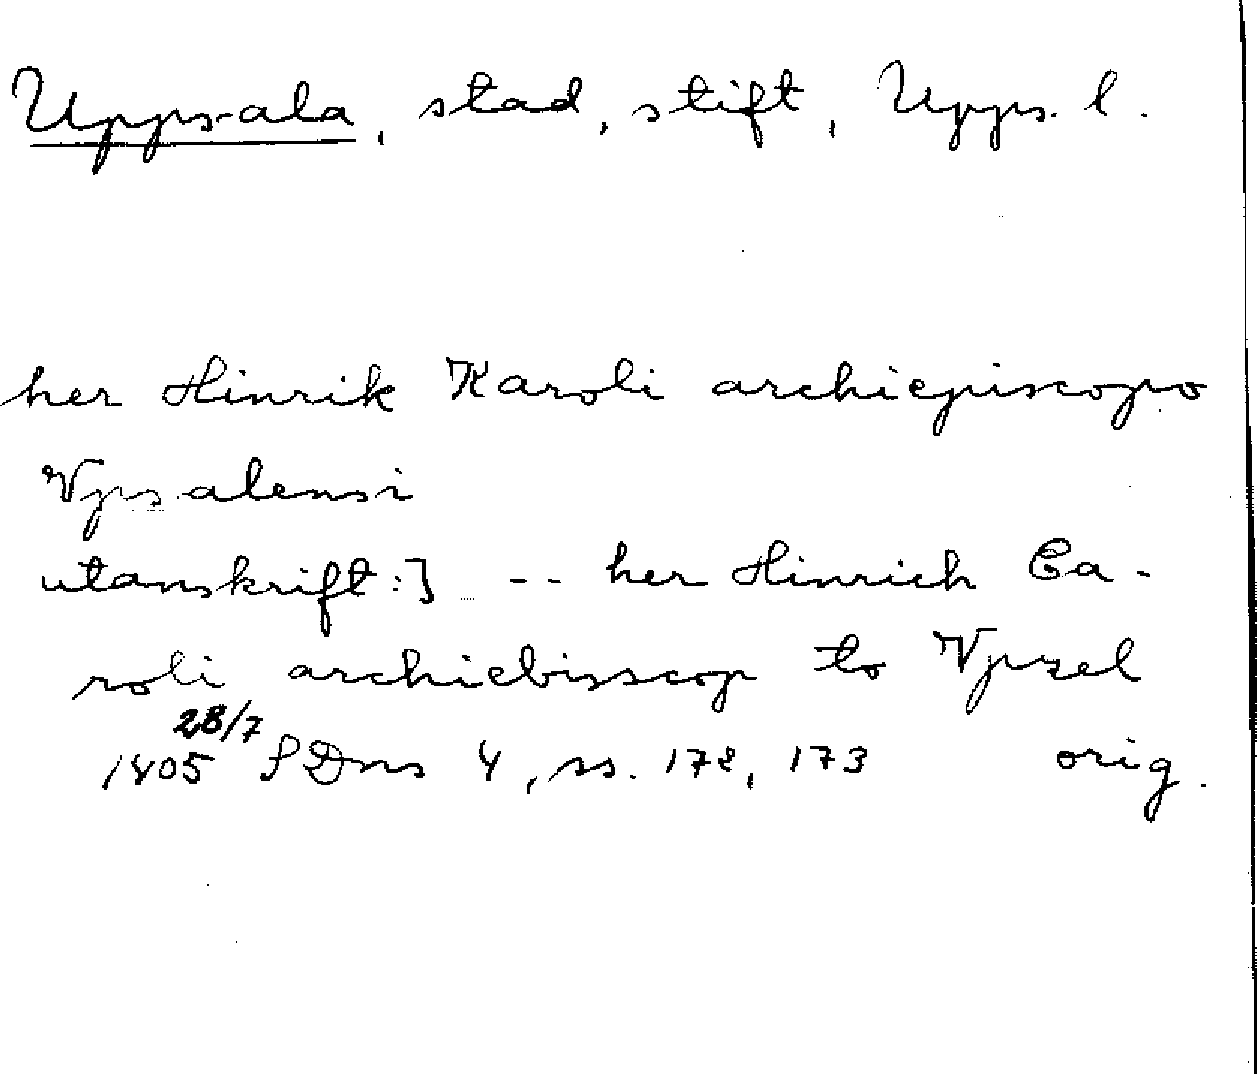 Uppsala, stad, stift, Upps. l.
her Hinrik Karoli archiepiscopo
Vpsalensi
utanskrift:] -- her Hinrich Ca-
roli archiebisscop to Vpzel
28/7
1405 SDns 4, ss. 172, 173 orig.